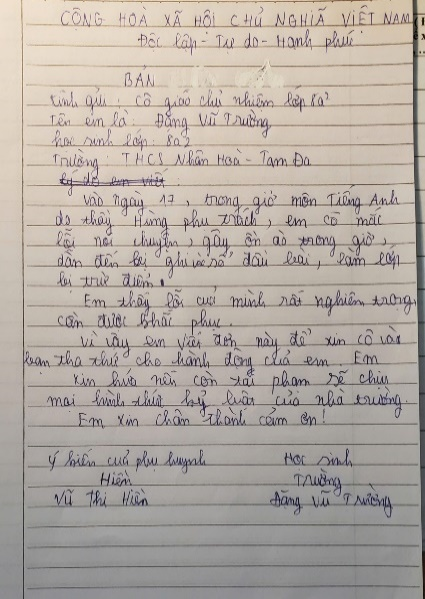 CỘNG HOÀ XÃ HỘI CHỦ NGHĨA VIỆT NAM
Độc lập - Tự do - Hạnh phúc
BẢN
Kính gửi : Cô giáo chủ nhiệm lớp 8a2
Tên em là : Đặng Vũ Trường
học sinh lớp : 8a2
Trường : THCS Nhân Hoà - Tam Đa
Lý do em viết :
Vào ngày 17, trong giờ môn Tiếng Anh
do thầy Hùng phụ trách, em có mắc
lỗi nói chuyện, gây ồn ào trong giờ,
dẫn đến bị ghi sổ đầu bài, làm lớp
bị trừ điểm.
Em thấy lỗi của mình rất nghiêm trọng,
cần được khắc phục.
Vì vậy em viết đơn này để xin cô và
bạn tha thứ cho hành động của em. Em
xin hứa nếu còn tái phạm sẽ chịu
mọi hình thức kỷ luật của nhà trường.
Em xin chân thành cảm ơn!
Ý kiến của phụ huynh
Hiền
Vũ Thị Hiền
Học sinh
Trường
Đặng Vũ Trường